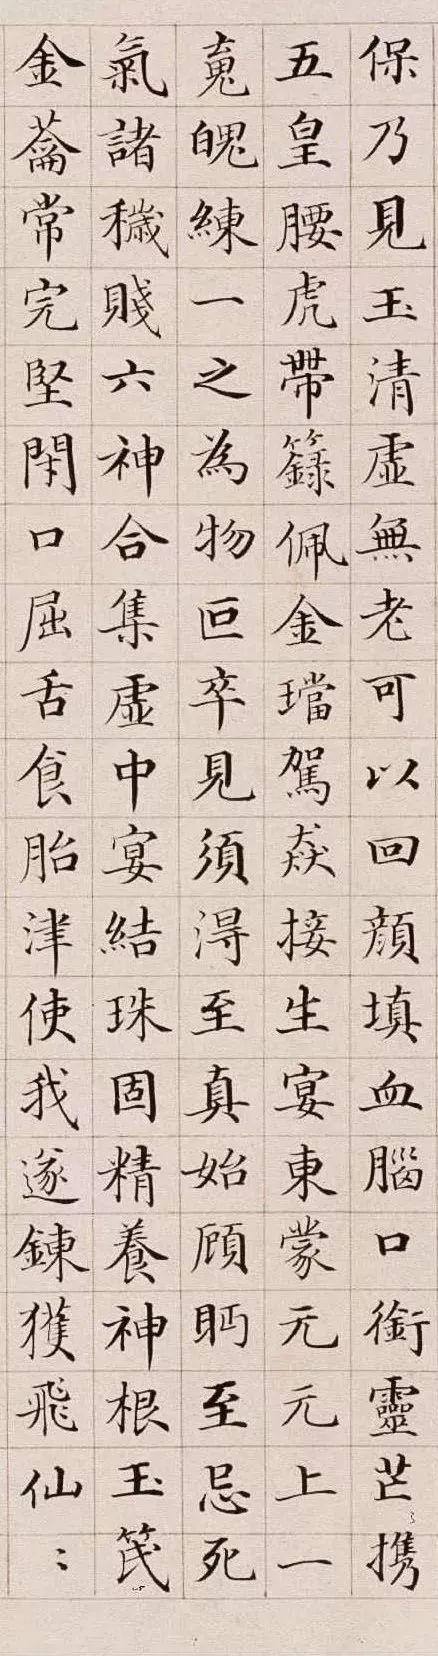 保乃見玉清虛無老可以回顏填血腦口銜靈芒携
五皇腰虎帶籙佩金璫駕焱接生宴東蒙元元上一
䰟魄練一之為物叵卒見須淂至真始顧眄至忌死
氣諸穢賤六神合集虛中宴結珠固精養神根玉笢
金籥常完堅閇口屈舌食胎津使我遂鍊獲飛仙〻